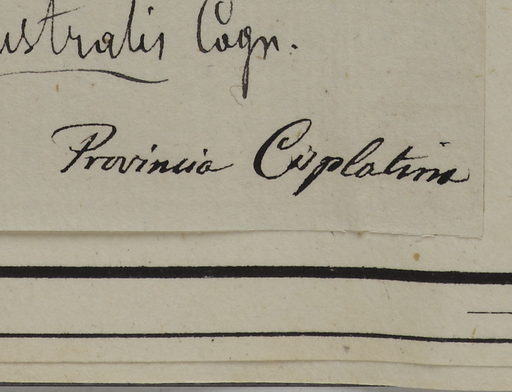 ustralis Cogn.
Provincia Cisplatina